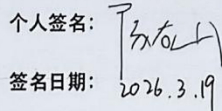 个人签名:
签名日期: 2026.3.19